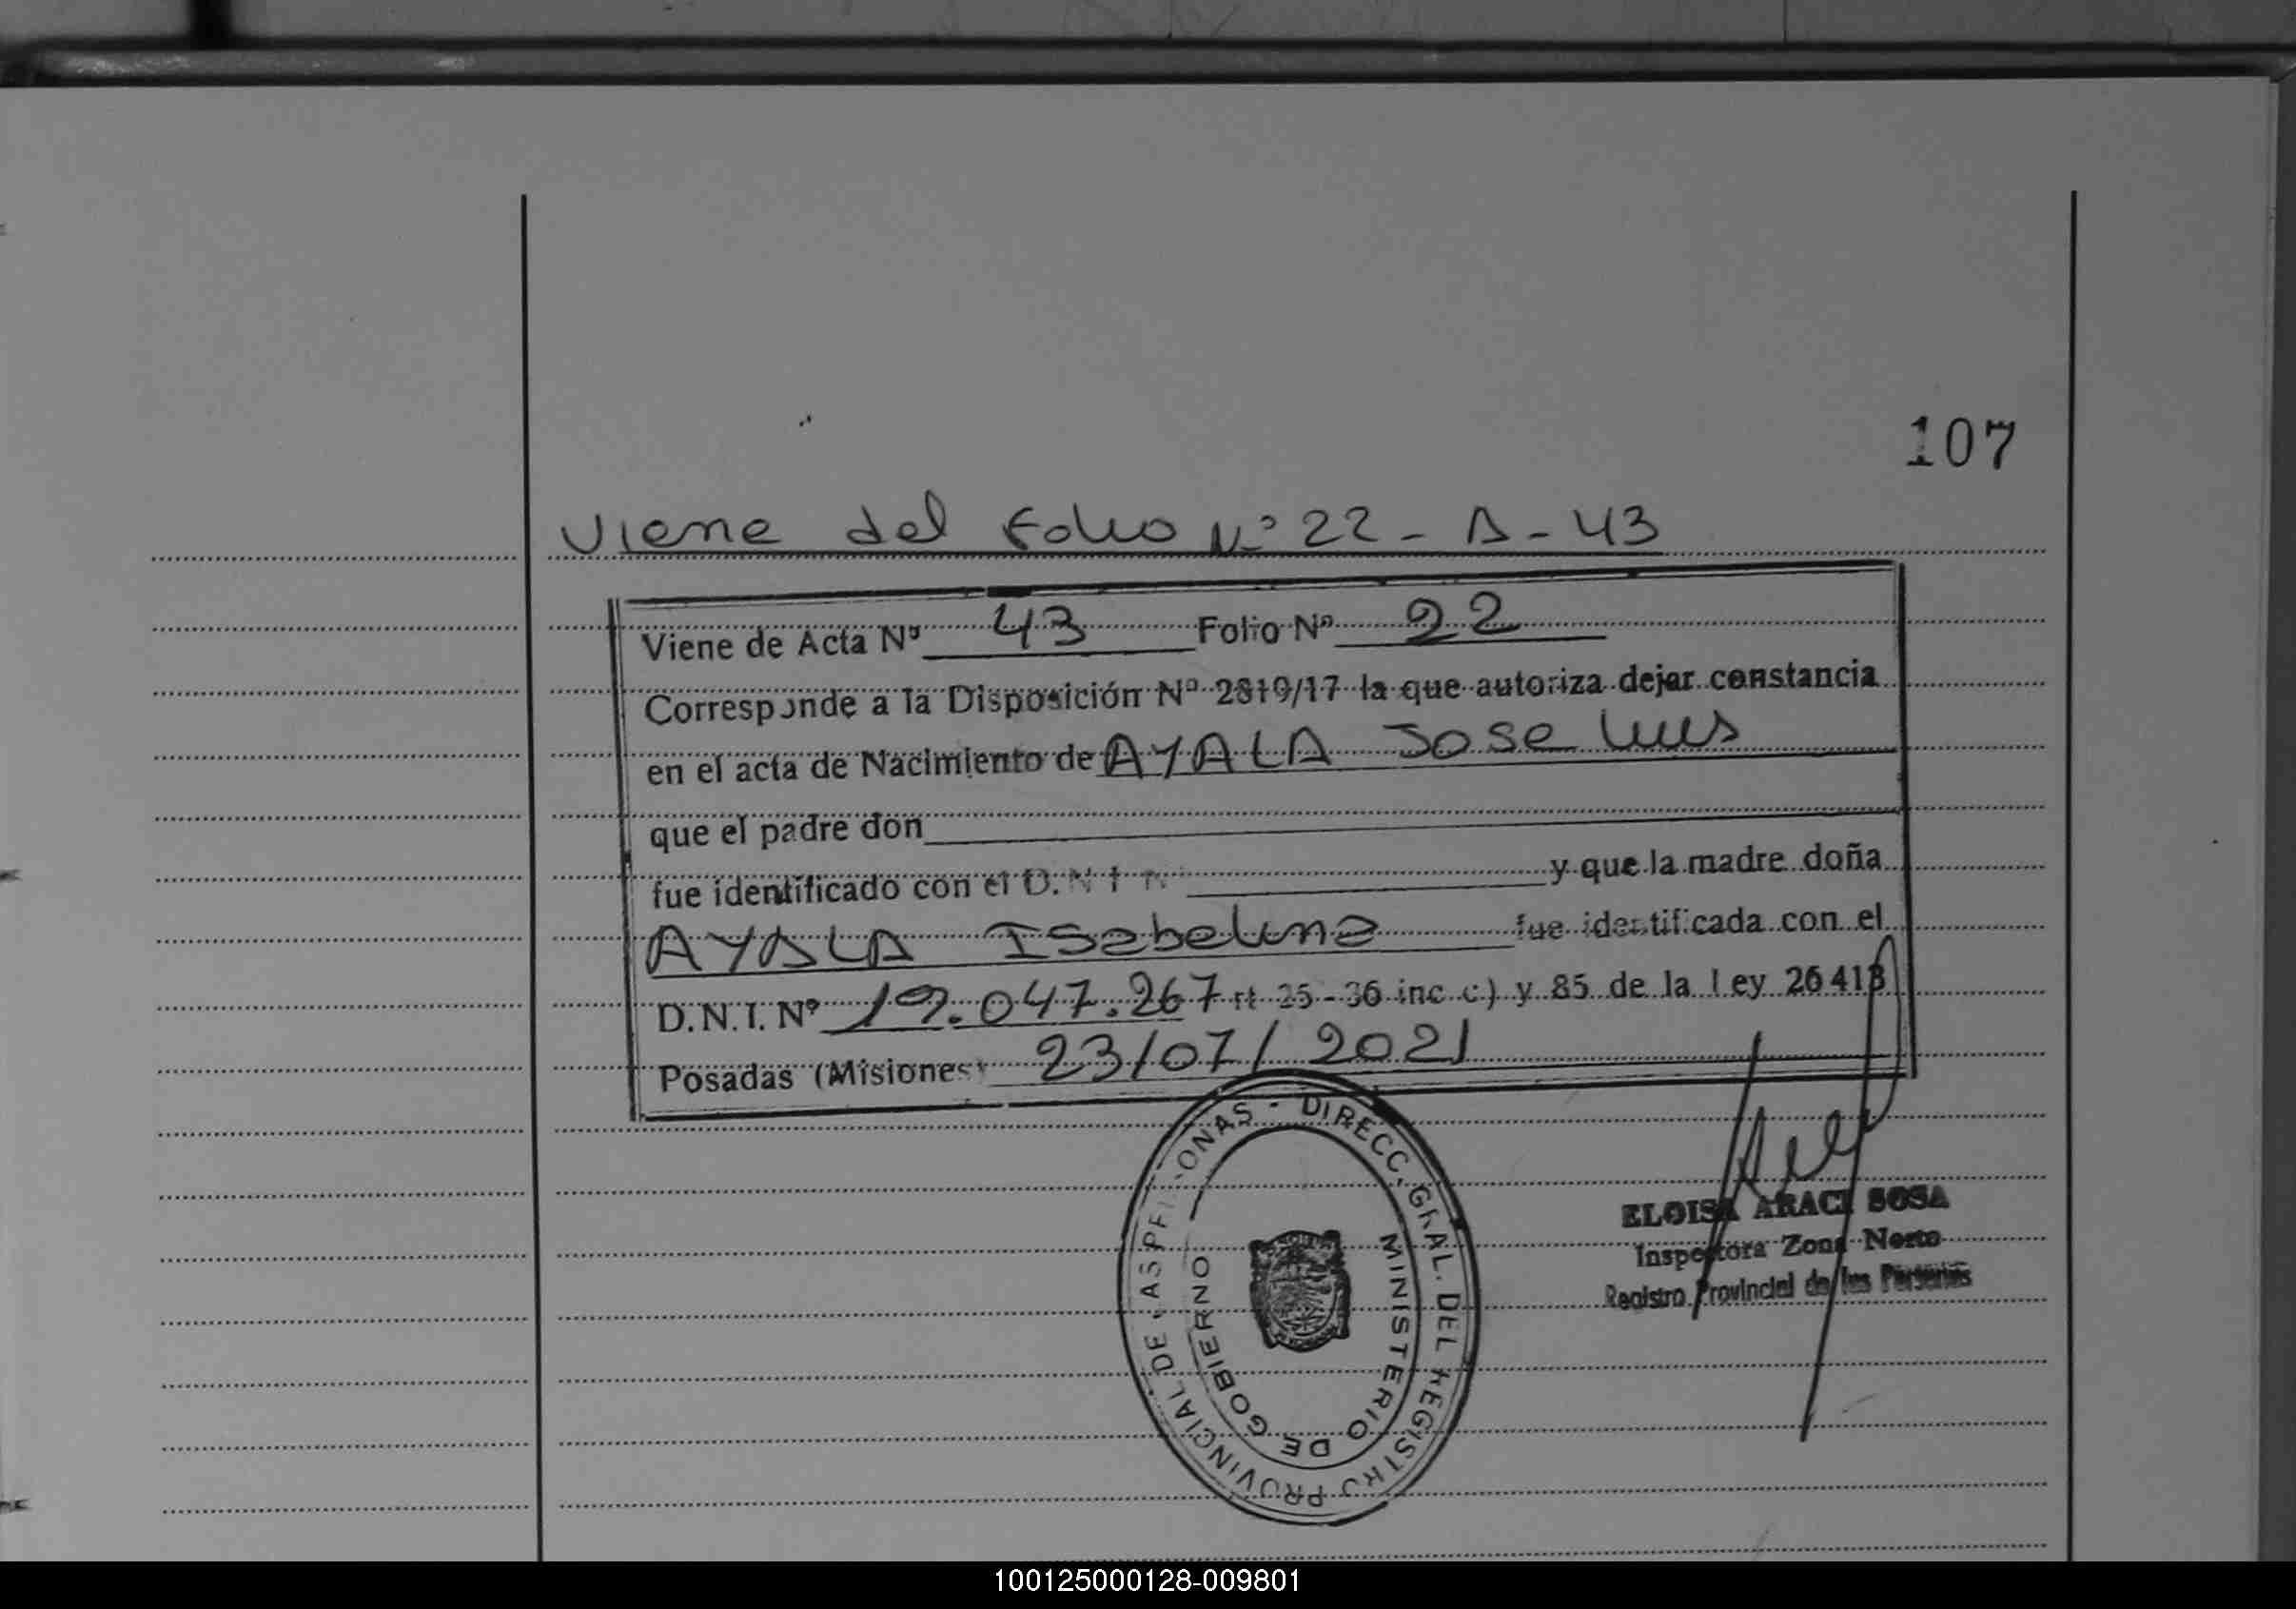 107
Viene del Folio Nº 22 - A - 43
Viene de Acta Nº 43 Folio Nº 22
Corresponde a la Disposición Nº 2819/17 la que autoriza dejar constancia
en el acta de Nacimiento de AYALA Jose Luis
que el padre don
fue identificado con el D.N.I. Nº y que la madre doña
AYALA Isabelina fue identificada con el
D.N.I. Nº 19.047.267 rt 35-36 inc c) y 85 de la Ley 26413
Posadas (Misiones) 23/07/2021
DIRECC. GRAL. DEL REGISTRO PROVINCIAL DE LAS PERSONAS -
MINISTERIO DE GOBIERNO
ELOISA ARACI SOSA
Inspectora Zona Norte
Registro Provincial de las Personas
100125000128-009801